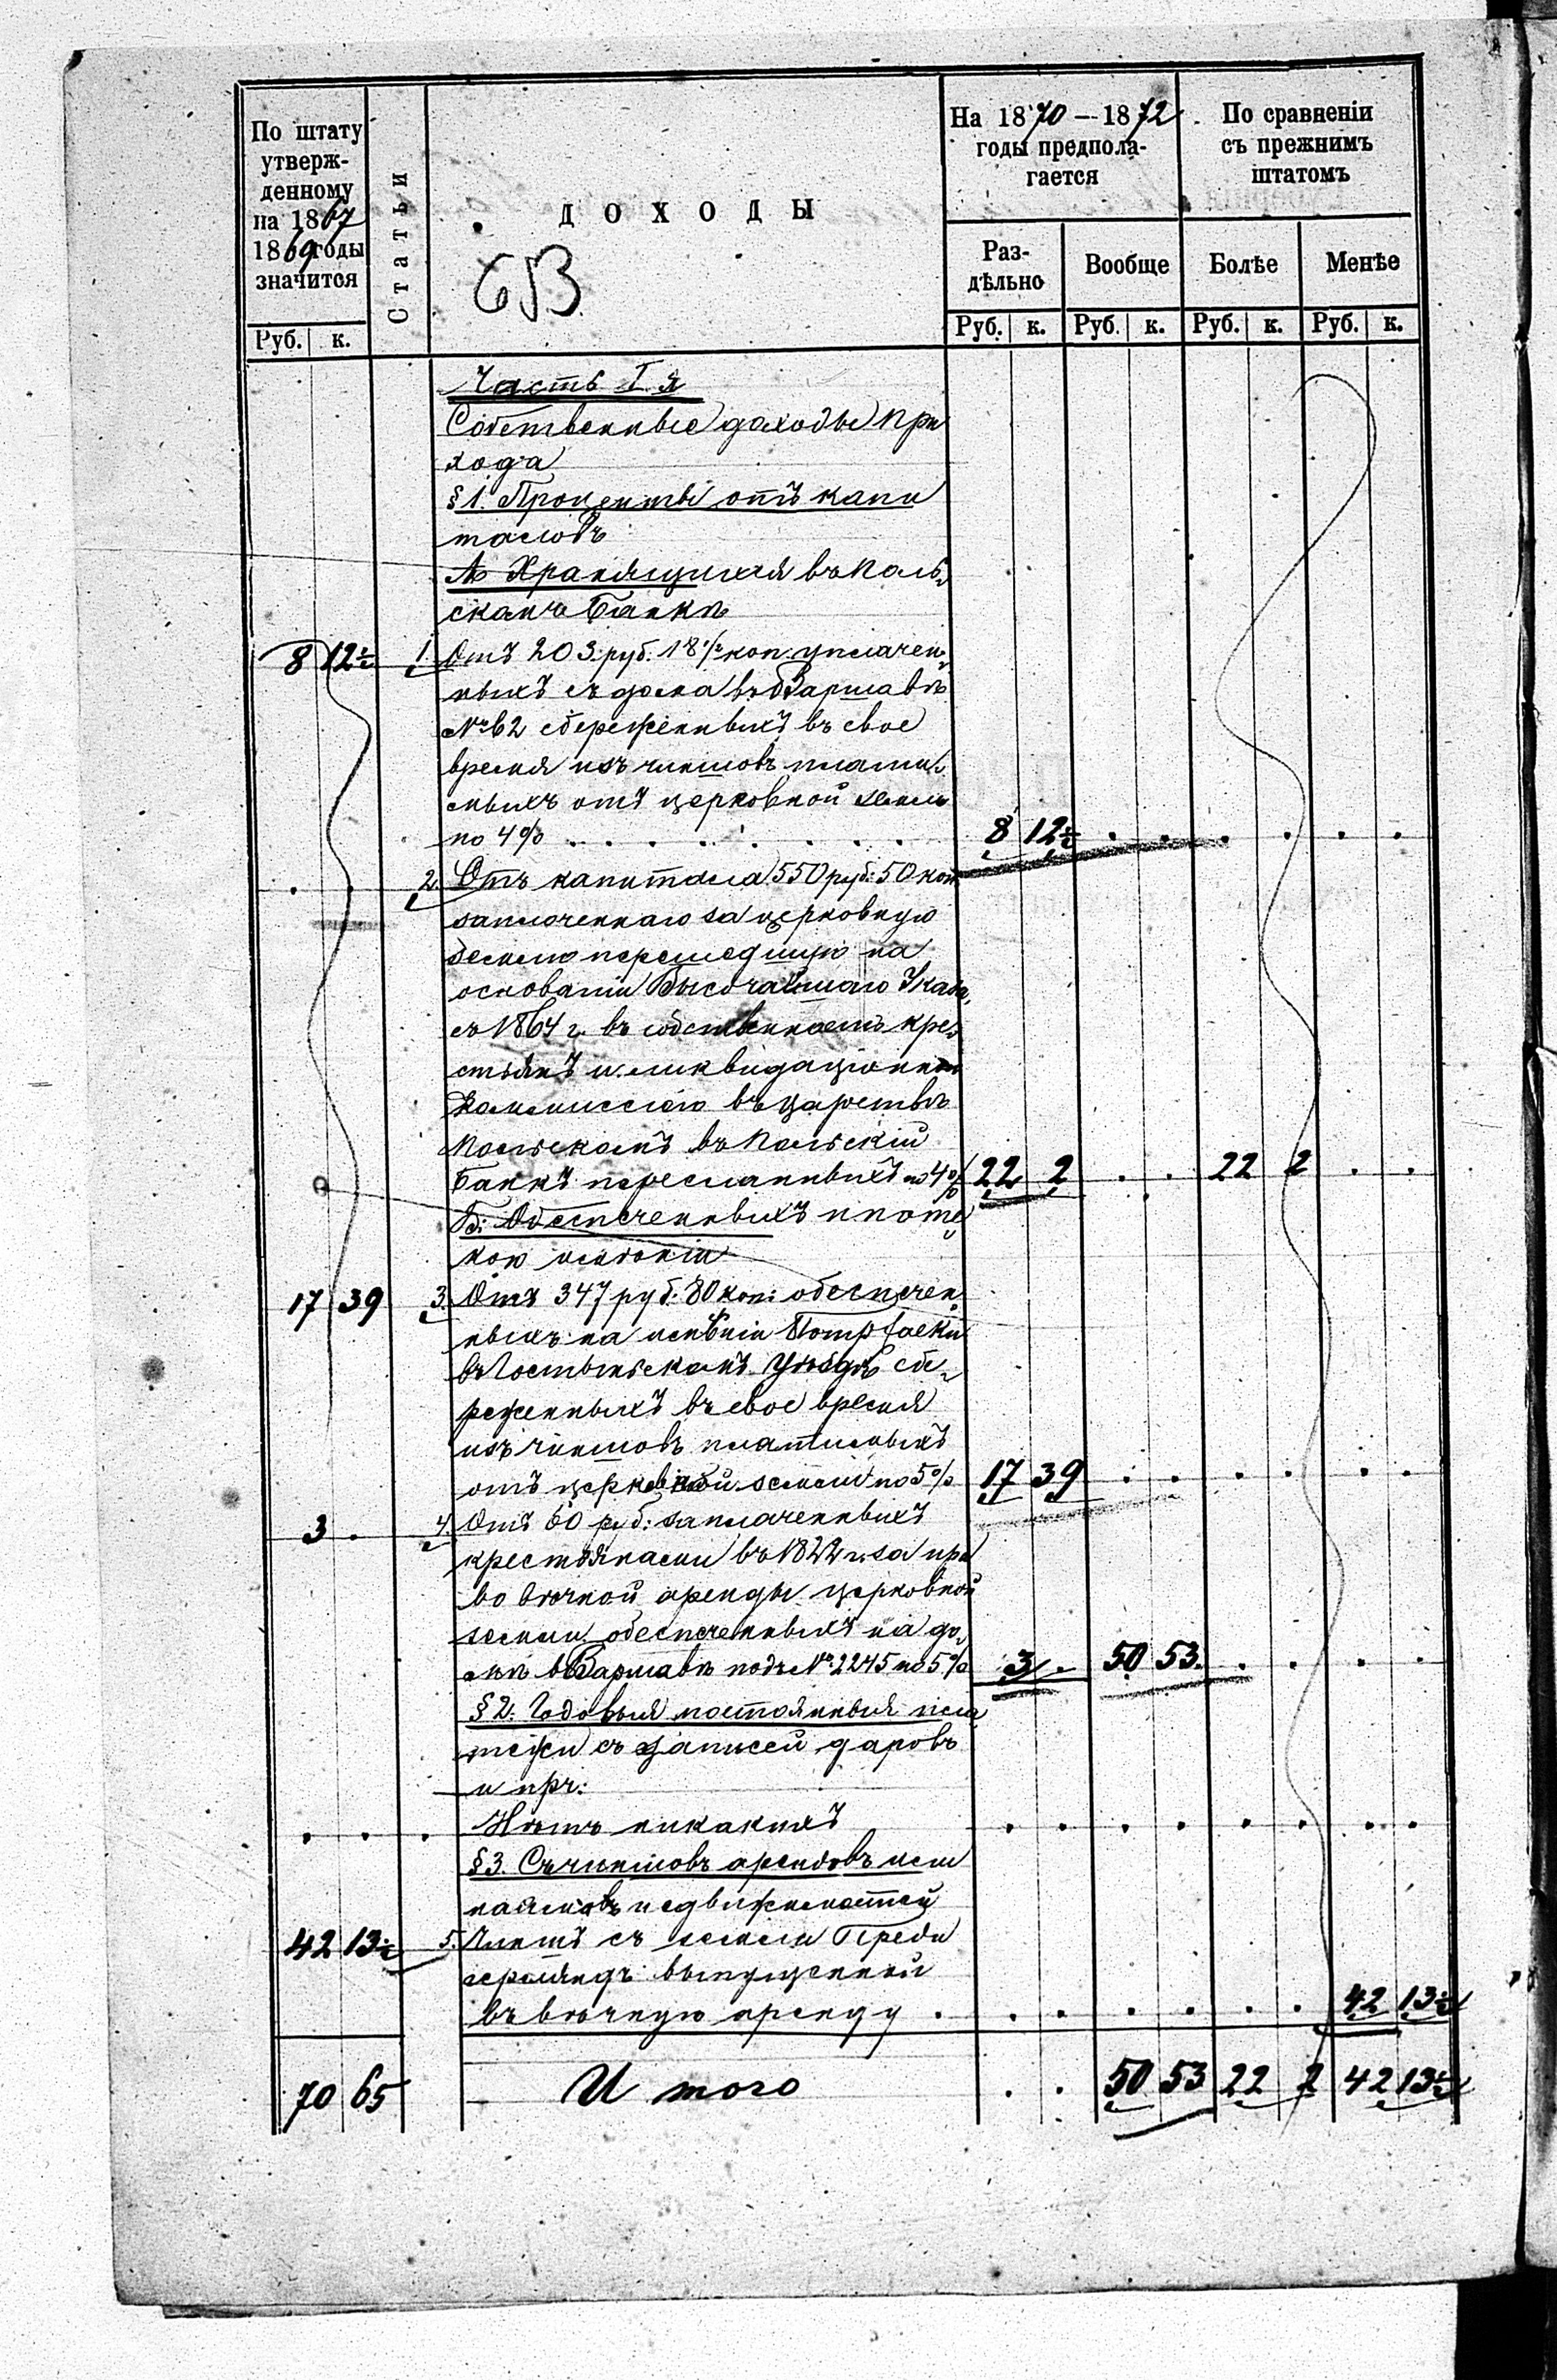 По штату
утверж-
денному
на 1867
1869 годы
значится
Руб. к.
Статьи
ДОХОДЫ
На 1870 — 1872
годы предпола-
гается
По сравненіи
съ прежнимъ
штатомъ
Раз-
дѣльно
Вообще
Болѣе
Менѣе
Руб. к. Руб. к. Руб. к. Руб. к.
Часть I я
Собственные доходы при
хода
§ 1. Проценты отъ капи
таловъ
А Хранящихся въ Поль-
скомъ Банкѣ
8 12½ 1. Отъ 203 руб. 18½ коп. уплачен-
ныхъ съ дома въ Варшавѣ
№ 62 сбереженныхъ въ свое
время изъ чиншовъ платим-
ныхъ отъ церковной земли
по 4% . . . . . . . . . 8 12½ . . . . . .
. . 2. Отъ капитала 550 руб: 50 коп
заплоченнаго за церковную
землю перешедшую на
основаніи Высочайшаго Указа
съ 1864 г. въ собственность кре-
стьянъ и ликвидаціонной
Коммиссіею въ Царствѣ
Польскомъ въ Польскій
Банкъ пересланныхъ по 4% 22 2 . . 22 2 . .
Б: Обезпеченныхъ ипоте
кою имѣній
17 39 3. Отъ 347 руб: 80 коп: обезпечен
ныхъ на имѣніи
въ Гостынскомъ Уѣздѣ сбе-
реженныхъ въ свое время
изъ чиншовъ платимыхъ
отъ церковной земли по 5% 17 39 . . . . . .
3 . 4. Отъ 60 руб: заплаченныхъ
крестьянами въ 1822 г. за пра
во вѣчной аренды церковной
земли обезпеченныхъ на до-
мѣ въ Варшавѣ подъ № 2245 по 5% 3 . 50 53. . . . .
§ 2. Годовыя постоянныя пла
тежи съ записей даровъ
и пр.:
. . . Нѣтъ никакихъ . . . . . . . .
§ 3. Съ чиншовъ арендовъ или
наймовъ недвижимостей
42 13½ 5. Чиншъ съ земли
выпущенной
въ вѣчную аренду . . . . . . . 42 13½
70 65 Итого . . 50 53 22 2 42 13½